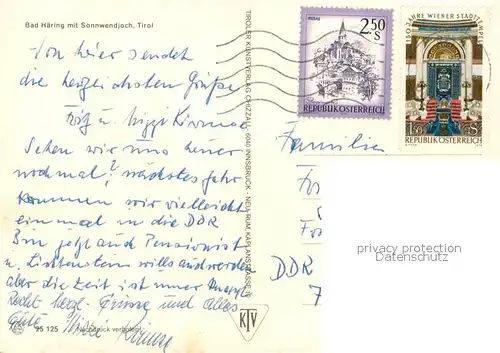 Bad Häring mit Sonnwendjoch, Tirol
Von hier sendet
die herzlichsten Grüße
Fritz u.
Sehen wir uns heuer
nochmal? nächstes Jahr
kommen wir vielleicht
einmal in die DDR
Bin jetzt auch Pensionist
u. will es auch werden
aber die Zeit ist immer
Recht herzl. Grüsse und alles
Gute
95 125 Nachdruck verboten
TIROLER KUNSTVERLAG CHIZZALI · 6040 INNSBRUCK - NEU-RUM, KAPLANSTRASSE
KTV
MURAU
2.50
S
REPUBLIK ÖSTERREICH
150 JAHRE WIENER STADTTEMPEL
1.50 S
REPUBLIK ÖSTERREICH
Familie
DDR
7
privacy protection
Datenschutz